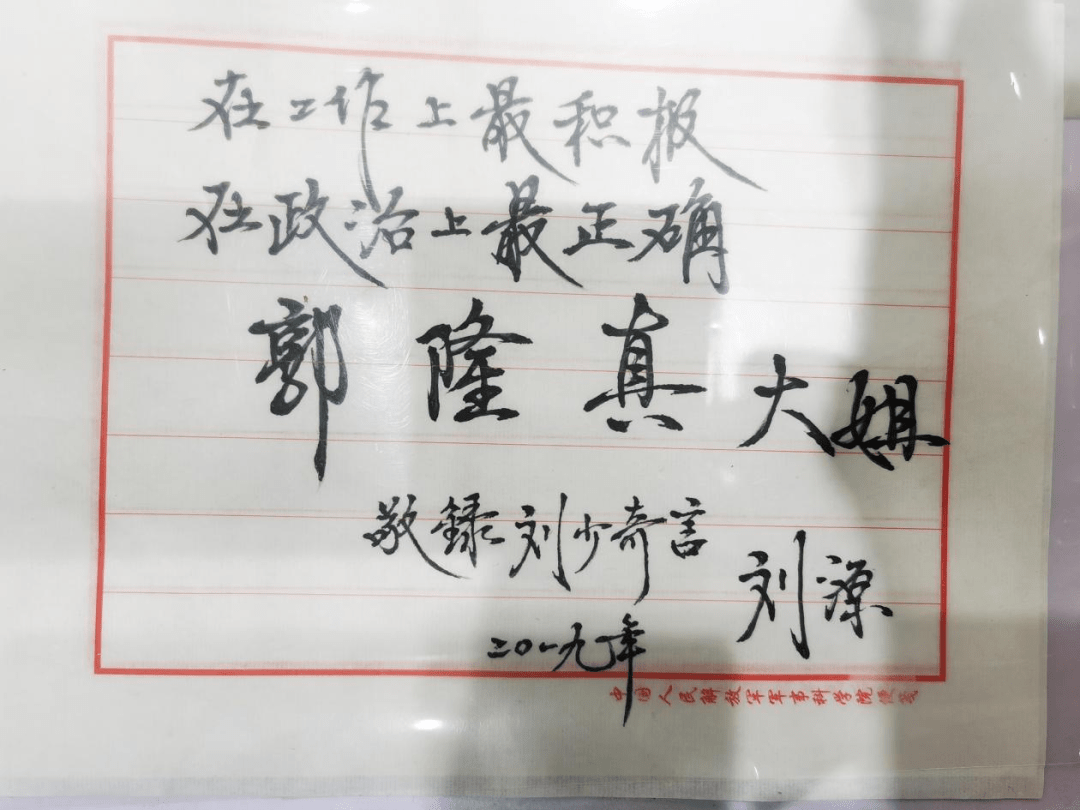 在工作上最积极
在政治上最正确
郭隆真大姐
敬録刘少奇言
刘源
二〇一九年
中国人民解放军军事科学院便笺